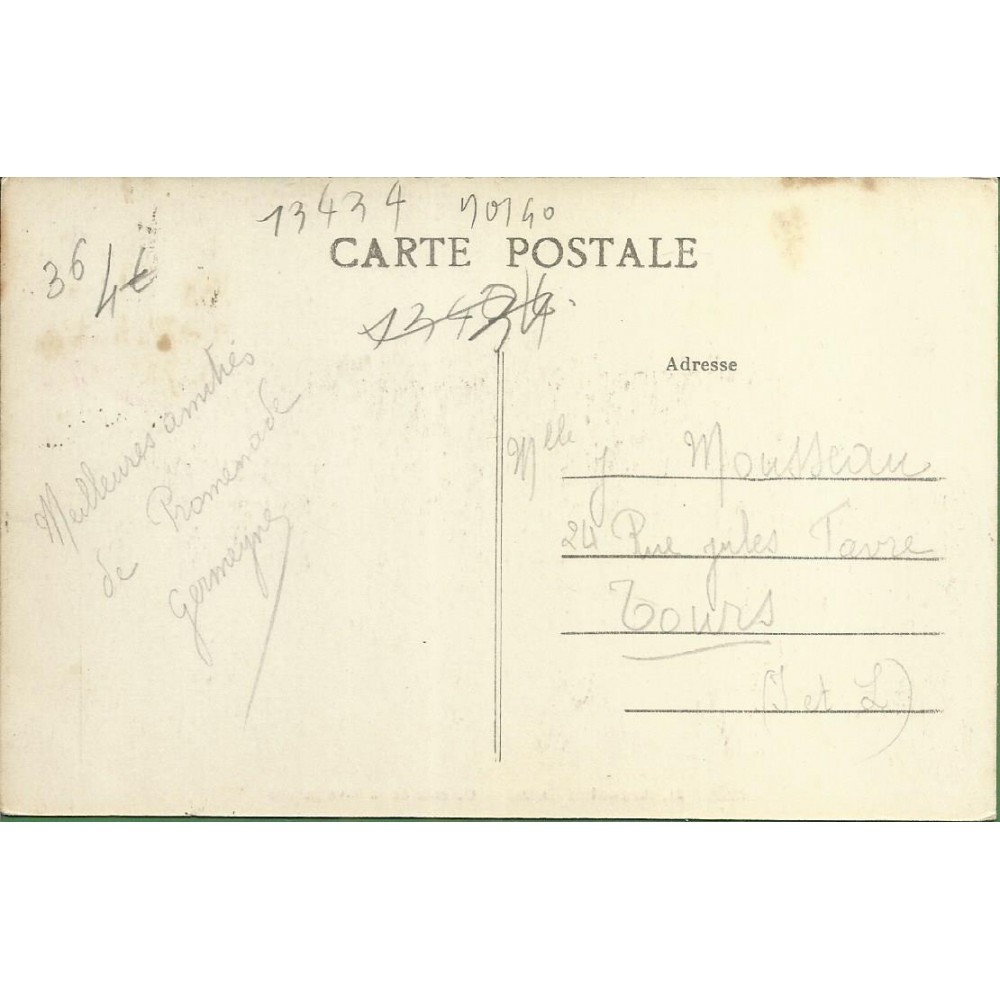 13434
36
4€
CARTE POSTALE
13434
Adresse
Meilleures amitiés
de Promenade
Germeyne
Mlle J Mousseau
24 Rue jules Favre
Tours
(I et L)